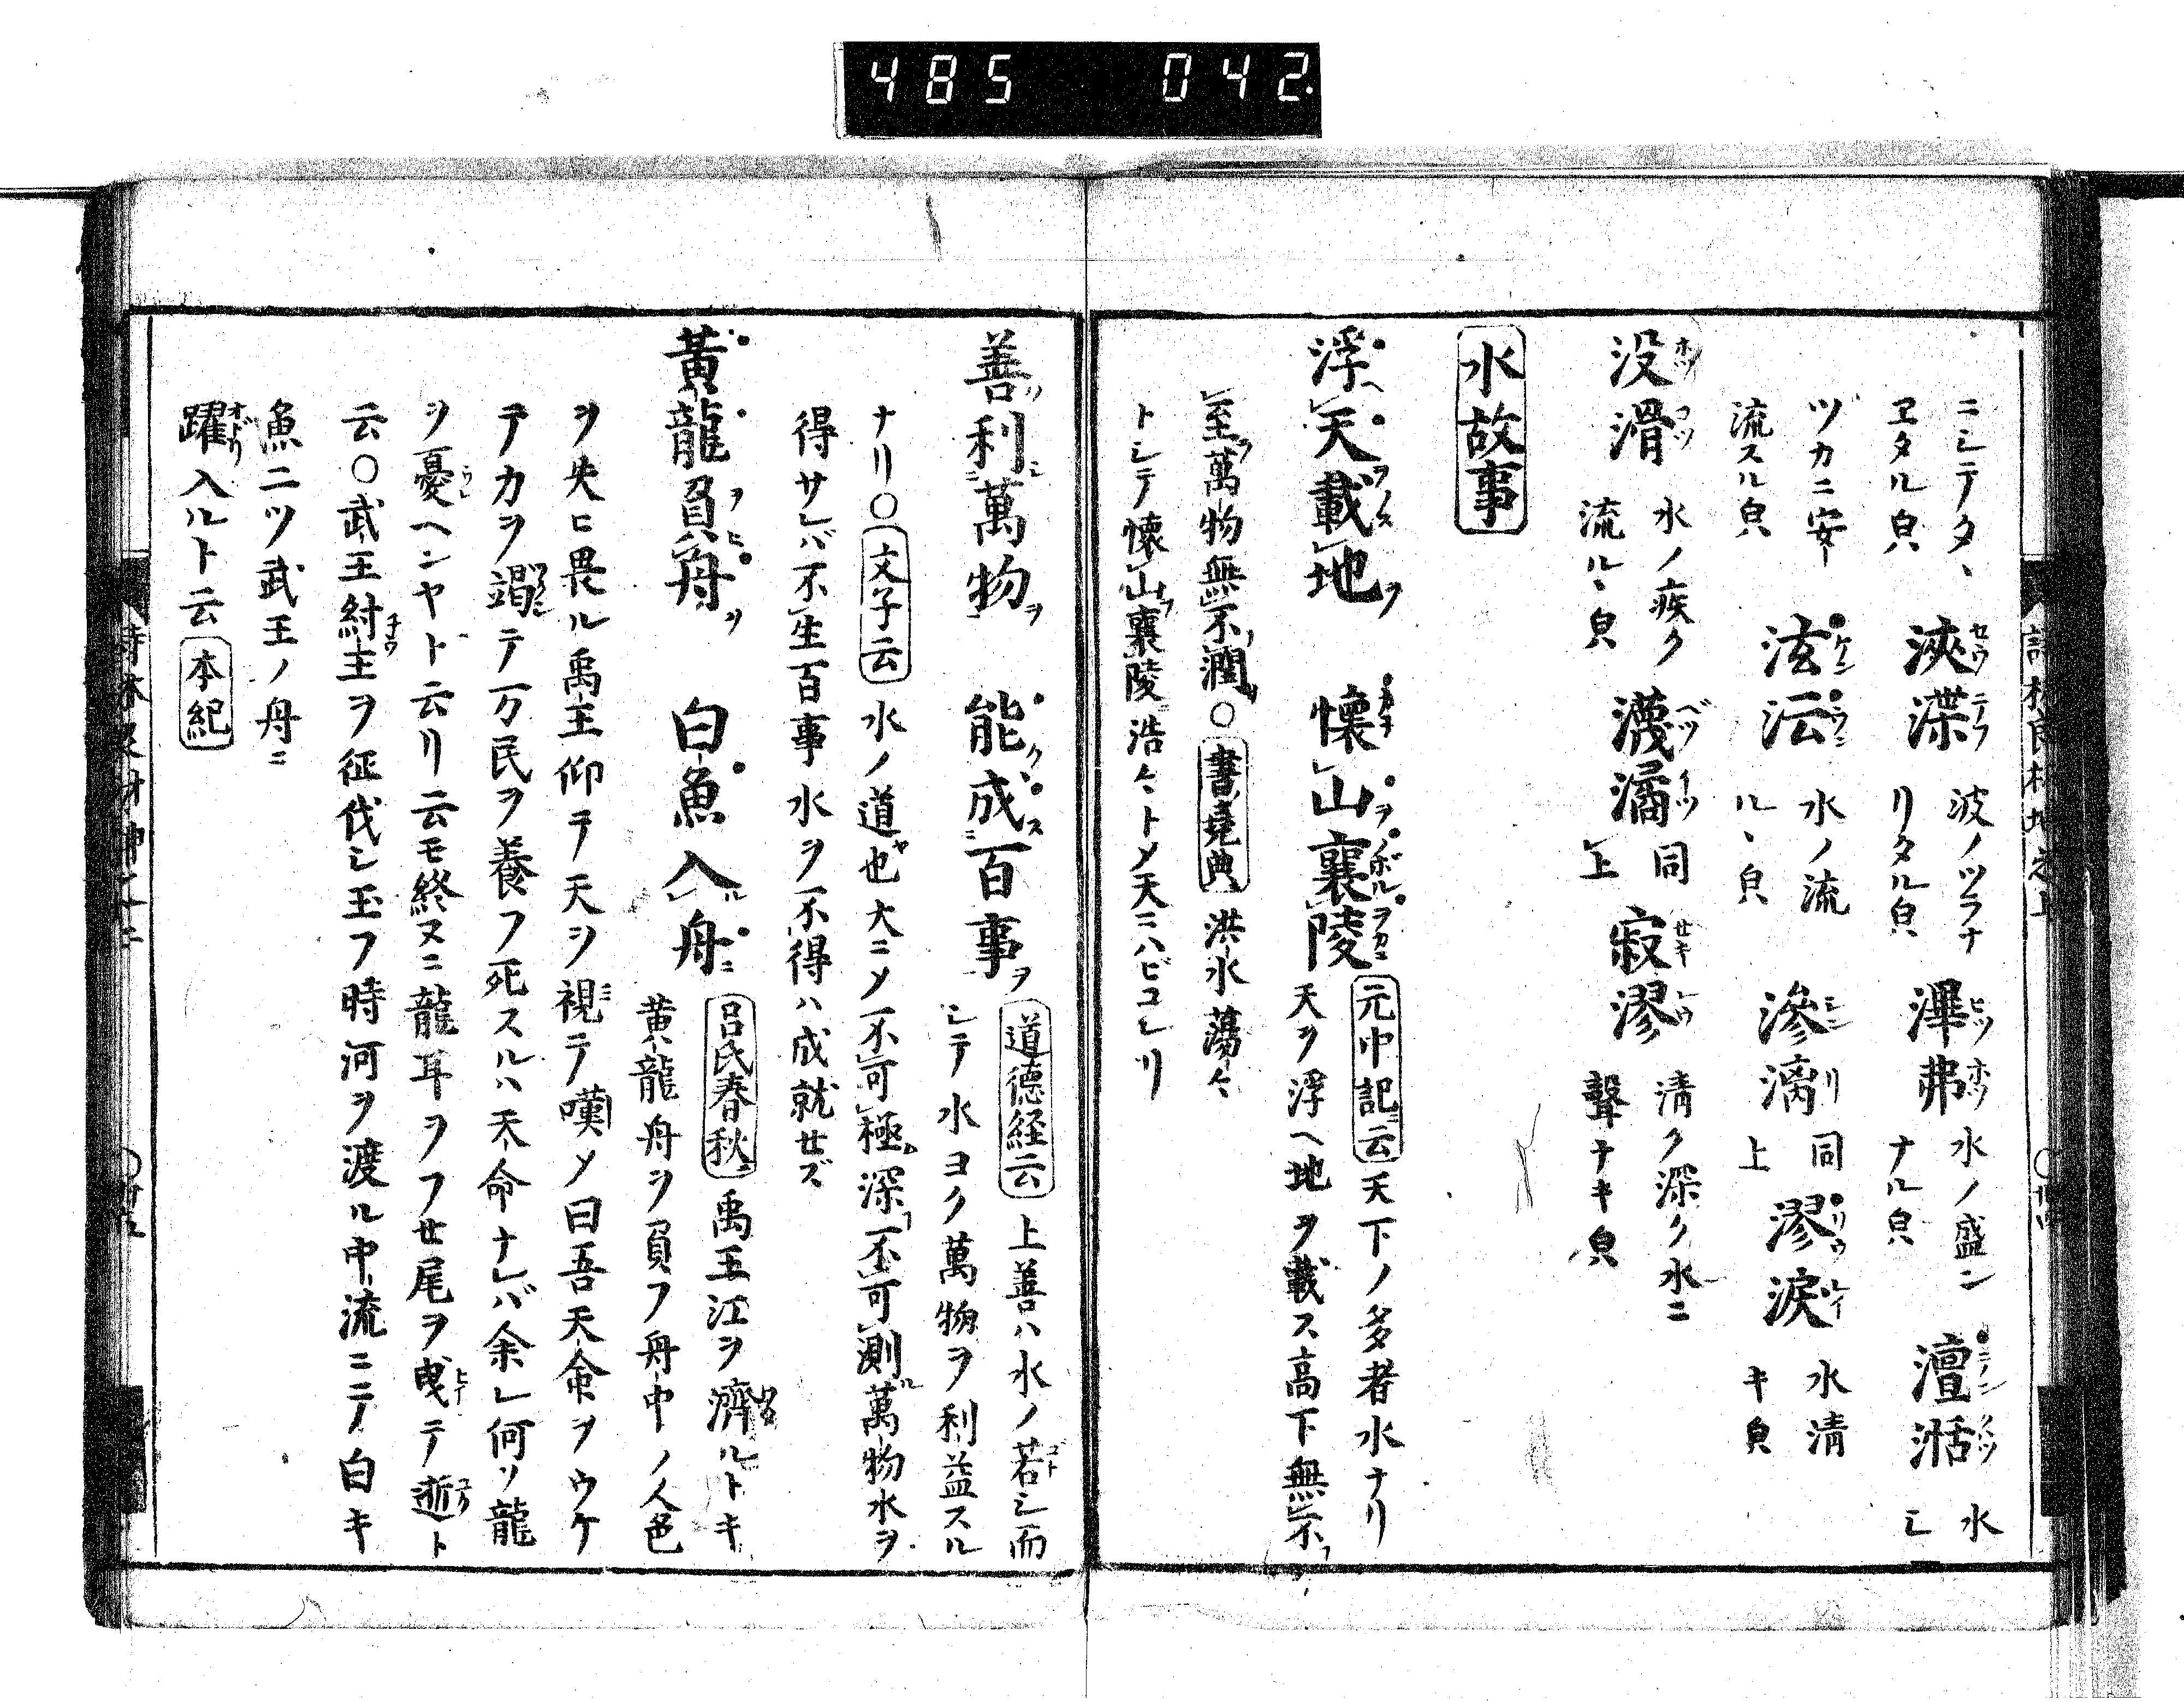 485 042
ニシテタヽ 浹渫 波ノツラナ 滭弗 水ノ盛ン 澶湉 水
ヱタル皃 リタル皃 ナル皃 シ
ツカニ安 泫沄 水ノ流 滲漓 同 漻淚 水清
流スル皃 ルヽ皃 上 キ皃
没滑 水ノ疾ク 瀎潏 同 寂漻 清ク深ク水ニ
流ルヽ皃 上 聲ナキ皃
水故事
浮天載地 懐山襄陵 元中記云 天下ノ多者水ナリ
天ヲ浮ヘ地ヲ載ス高下無不
至萬物無不潤○書堯典 洪水蕩々
トシテ懐山襄陵浩々トメ天ニハビコレリ
善利萬物 能成百事 道德経云 上善ハ水ノ若シ而
シテ水ヨク萬物ヲ利益スル
ナリ○文子云 水ノ道也大ニメ不可極深不可測萬物水ヲ
得サレバ不生百事水ヲ不得ハ成就せズ
黃龍負舟 白魚入舟 呂氏春秋 禹王江ヲ濟ルトキ
黄龍舟ヲ負フ舟中ノ人色
ヲ失ヒ畏ル禹王仰テ天ヲ視テ嘆メ曰吾天命ヲウケ
テカヲ竭テ万民ヲ養フ死スルハ天命ナレバ余レ何ソ龍
ヲ憂ヘンヤト云リ云モ終ヌニ龍耳ヲフせ尾ヲ曵テ逝ト
云○武王紂王ヲ征伐シ玉フ時河ヲ渡ル中流ニテ白キ
魚二ツ武王ノ舟ニ
躍入ルト云 本紀